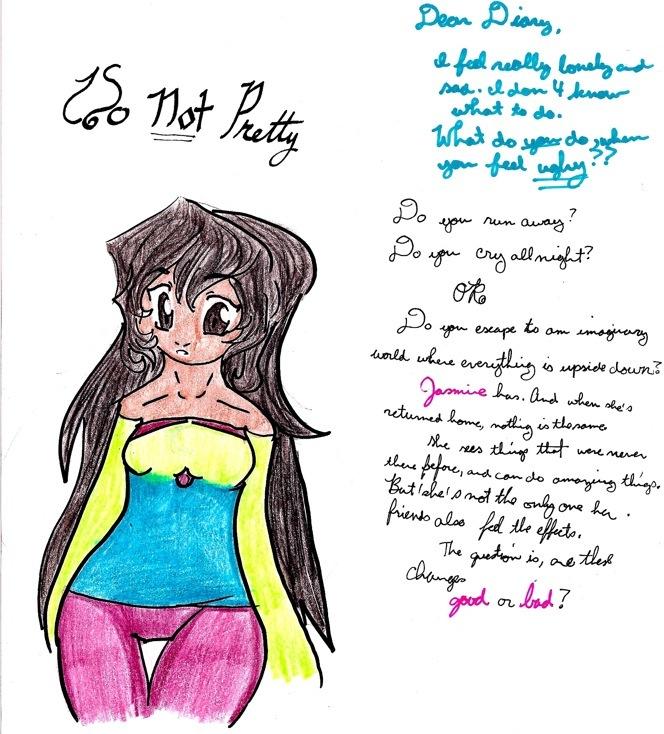 So Not Pretty
Dear Diary,
I feel really lonely and
sad. I don't know
what to do.
What do you do, when
you feel ugly??
Do you run away?
Do you cry all night?
OR
Do you escape to an imaginary
world where everything is upside down?
Jasmine has. And when she's
returned home, nothing is the same
She sees things that were never
there before, and can do amazing things.
But she's not the only one her
friends also feel the effects.
The question is, are these
changes
good or bad?